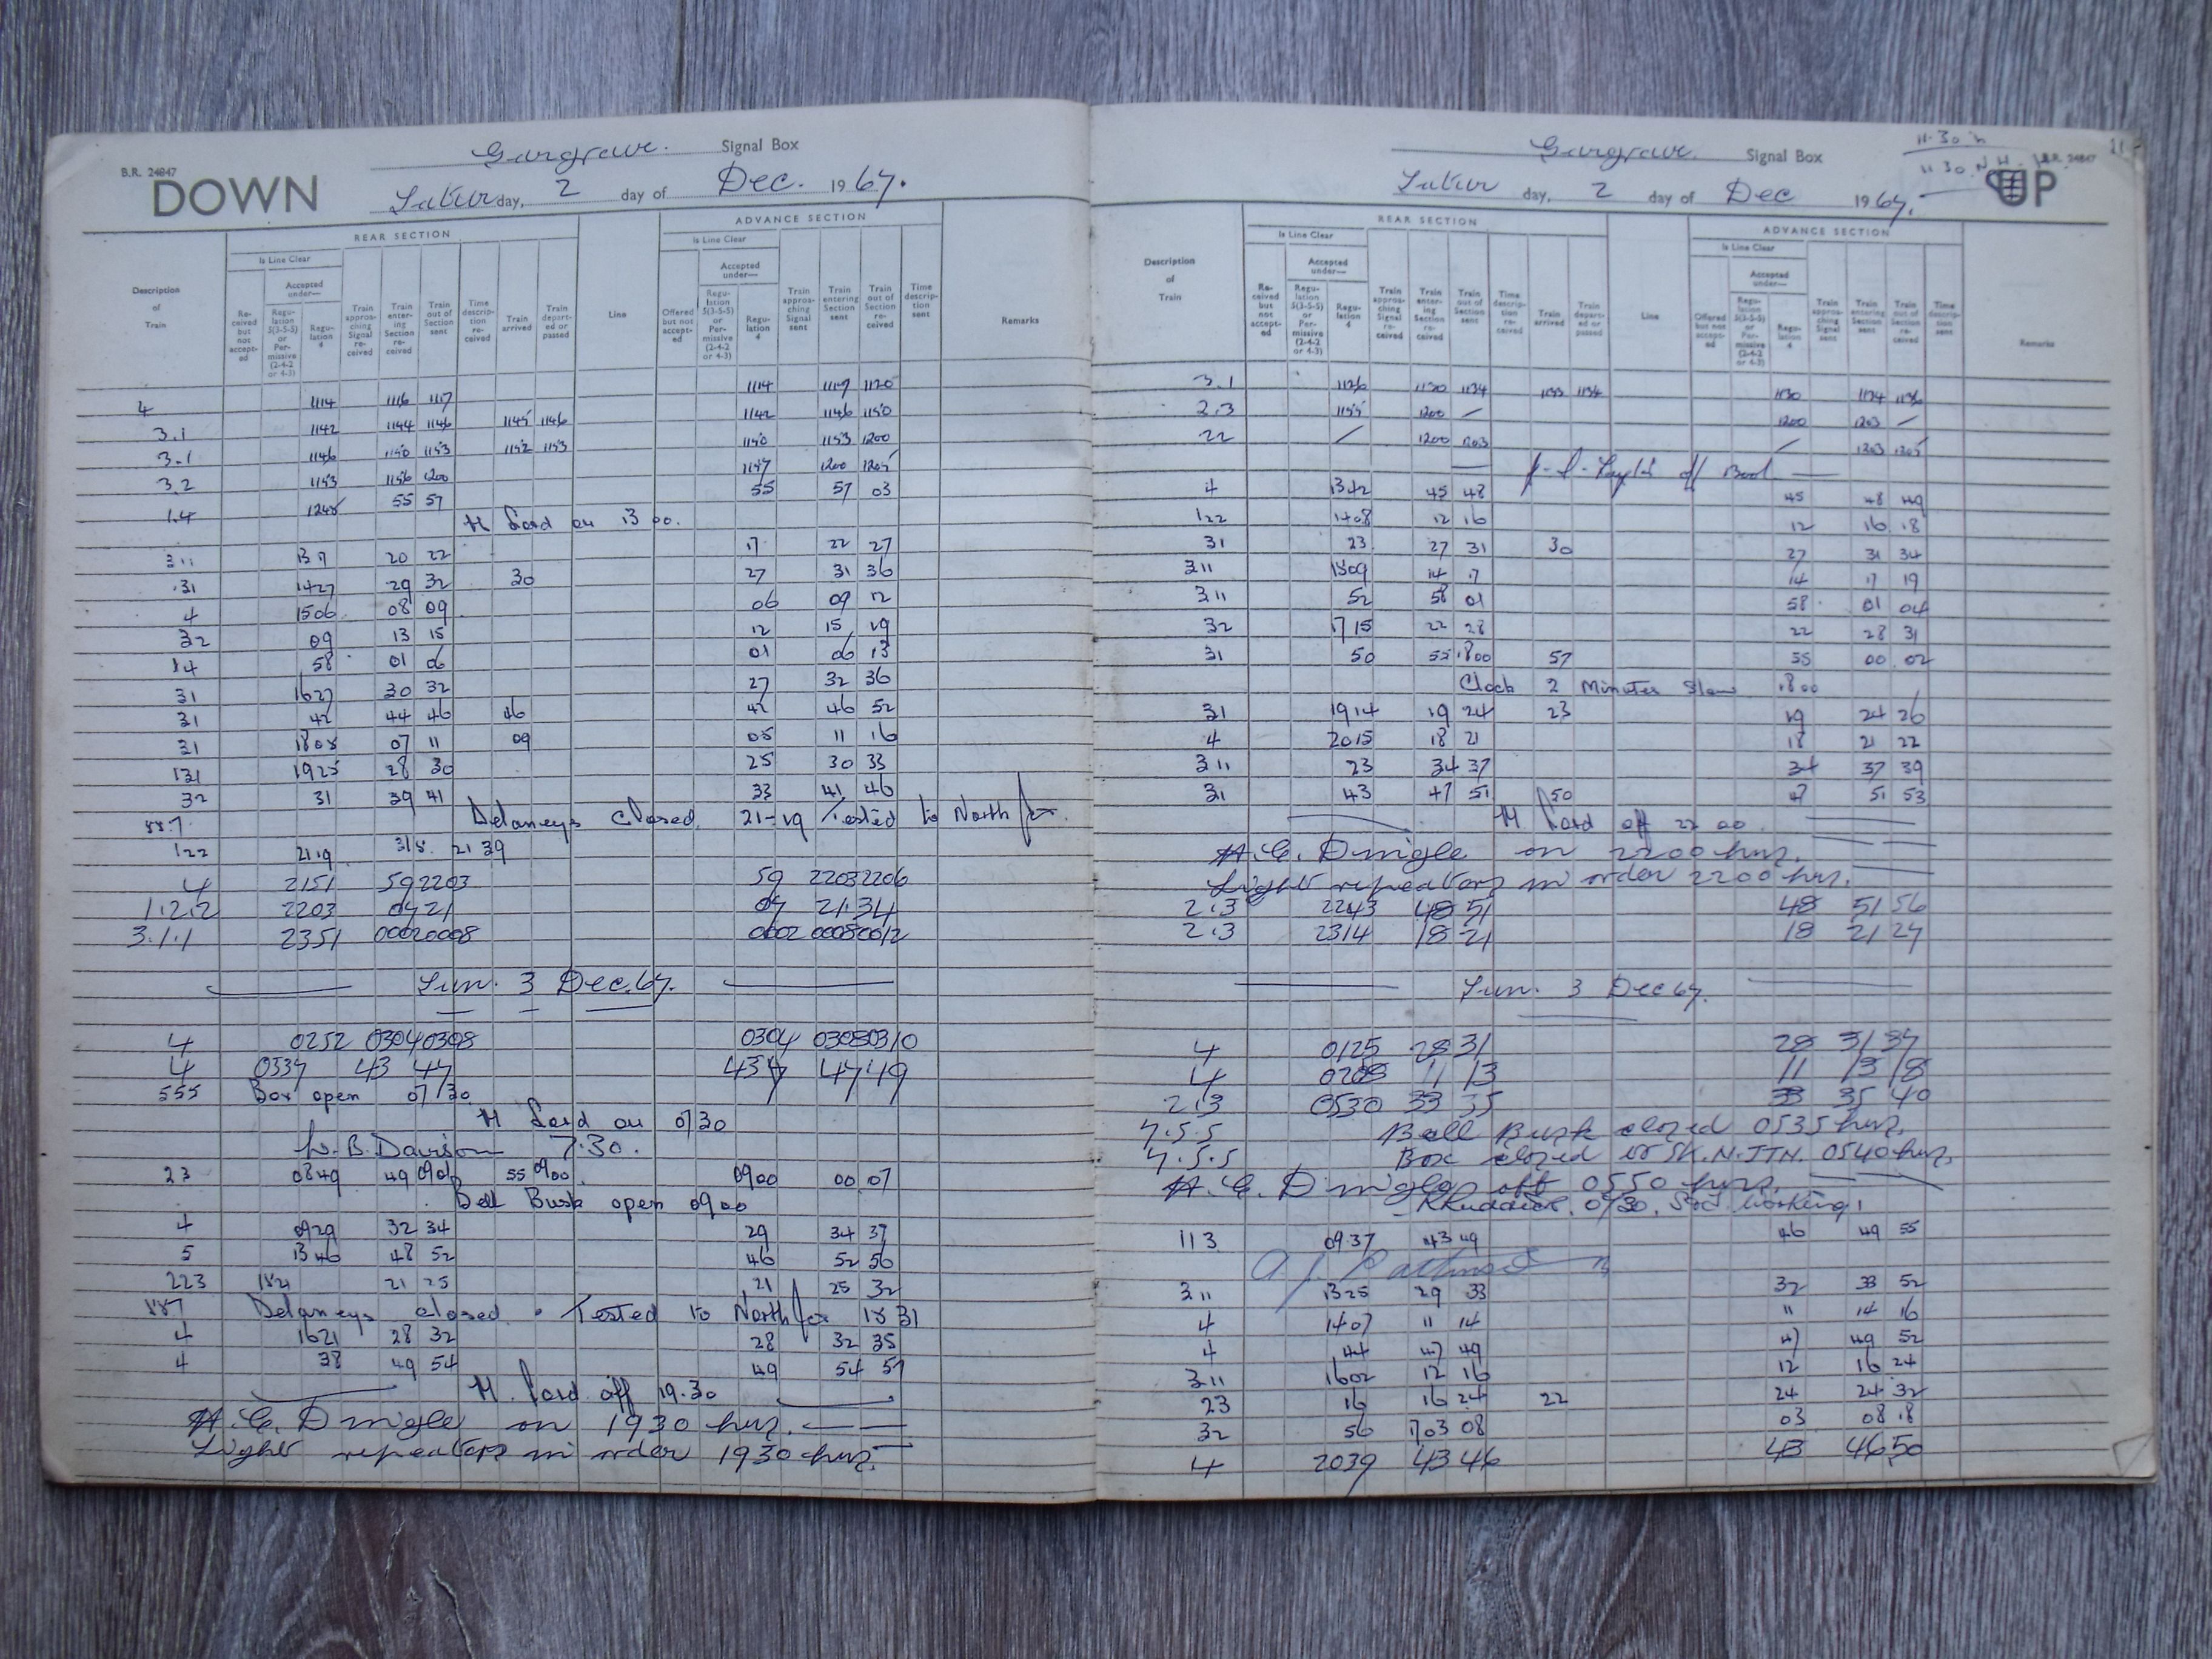 Gargrave. Signal Box
B.R. 24847
DOWN
Satur day, 2 day of Dec. 1967.
REAR SECTION
ADVANCE SECTION
Is Line Clear
Is Line Clear
Description of Train
Received but not accepted
Accepted under—
Regulation 5(3-5-5) or Permissive (2-4-2 or 4-3)
Regulation 4
Train approaching Signal received
Train entering Section received
Train out of Section sent
Time description received
Train arrived
Train departed or passed
Line
Offered but not accepted
Accepted under—
Regulation 5(3-5-5) or Permissive (2-4-2 or 4-3)
Regulation 4
Train approaching Signal sent
Train entering Section sent
Train out of Section received
Time description sent
Remarks
4 1114 1116 1117 1114 1117 1120
3.1 1142 1144 1146 1145 1146 1142 1146 1150
3.1 1146 1150 1153 1152 1153 1150 1153 1200
3.2 1153 1156 1200 1157 1200 1205
1.4 1248 55 57 55 57 03
H Lord on 13 00.
311 1317 20 22 17 22 27
31 1427 29 32 30 27 31 36
4 1506 08 09 06 09 12
32 09 13 15 12 15 19
14 58 01 06 01 06 13
31 1627 30 32 27 32 36
31 42 44 46 46 42 46 52
31 1805 07 11 09 05 11 16
131 1925 28 30 25 30 33
32 31 39 41 33 41 46
Delaneys closed 21-19 Tested to North
122 2119 21 39
4 2151 59 2203 59 2203 2206
1.2.2 2203 07 21 07 21 34
3.1.1 2351 0002 0008 0002 0008 0012
Sun. 3 Dec. 67.
4 0252 0304 0308 0304 0308 0310
4 0537 43 47 43 47 49
555 Box open 07/30
H Lord on 0730
W. B. Davison 7.30.
23 0849 49 55 0900 0900 00 07
Bell Busk open 0900
4 0929 32 34 29 34 37
5 1346 48 52 46 52 56
223 1521 21 25 21 25 32
Delaneys closed. Tested to North 1531
4 1621 28 32 28 32 35
4 38 49 54 49 54 57
H. Lord off 19.30
A. C. Dringle on 1930 hrs.
Light repeaters in order 1930 hrs.
Gargrave. Signal Box
11.30
B.R. 24847
UP
Satur day, 2 day of Dec 1967.
REAR SECTION
ADVANCE SECTION
Is Line Clear
Is Line Clear
Description of Train
Received but not accepted
Accepted under—
Regulation 5(3-5-5) or Permissive (2-4-2 or 4-3)
Regulation 4
Train approaching Signal received
Train entering Section received
Train out of Section sent
Time description received
Train arrived
Train departed or passed
Line
Offered but not accepted
Accepted under—
Regulation 5(3-5-5) or Permissive (2-4-2 or 4-3)
Regulation 4
Train approaching Signal sent
Train entering Section sent
Train out of Section received
Time description sent
Remarks
3.1 1126 1130 1134 1133 1134 1130 1134 1136
2.3 1155 1200 / 1200 1203 /
22 / 1200 1203 / 1203 1205
off Book
4 1342 45 48 45 48 49
122 1408 12 16 12 16 18
31 23 27 31 30 27 31 34
311 1509 14 17 14 17 19
311 52 58 01 58 01 04
32 1715 22 28 22 28 31
31 50 55 1800 57 55 00 02
Clock 2 Minutes Slow 1800
31 1914 19 24 23 19 24 26
4 2015 18 21 18 21 22
311 23 34 37 34 37 39
31 43 47 51 50 47 51 53
H Lord off 22 00
A. C. Dringle on 2200 hrs.
Light repeaters in order 2200 hrs.
2.3 2243 48 51 48 51 56
2.3 2314 18 21 18 21 27
Sun. 3 Dec 67.
4 0125 28 31 28 31 37
4 0208 11 13 11 13 18
2.3 0530 33 35 33 35 40
7.5.5 Bell Busk closed 0535 hrs.
7.5.5 Box closed to SK. N. JTN. 0540 hrs.
A. C. Dringle off 0550 hrs.
0730.
113 09.37 43 49 46 49 55
311 1325 29 33 32 33 52
4 1407 11 14 11 14 16
4 44 47 49 47 49 52
311 1602 12 16 12 16 24
23 16 16 24 22 24 24 32
32 56 1703 08 03 08 18
4 2039 43 46 43 46 50